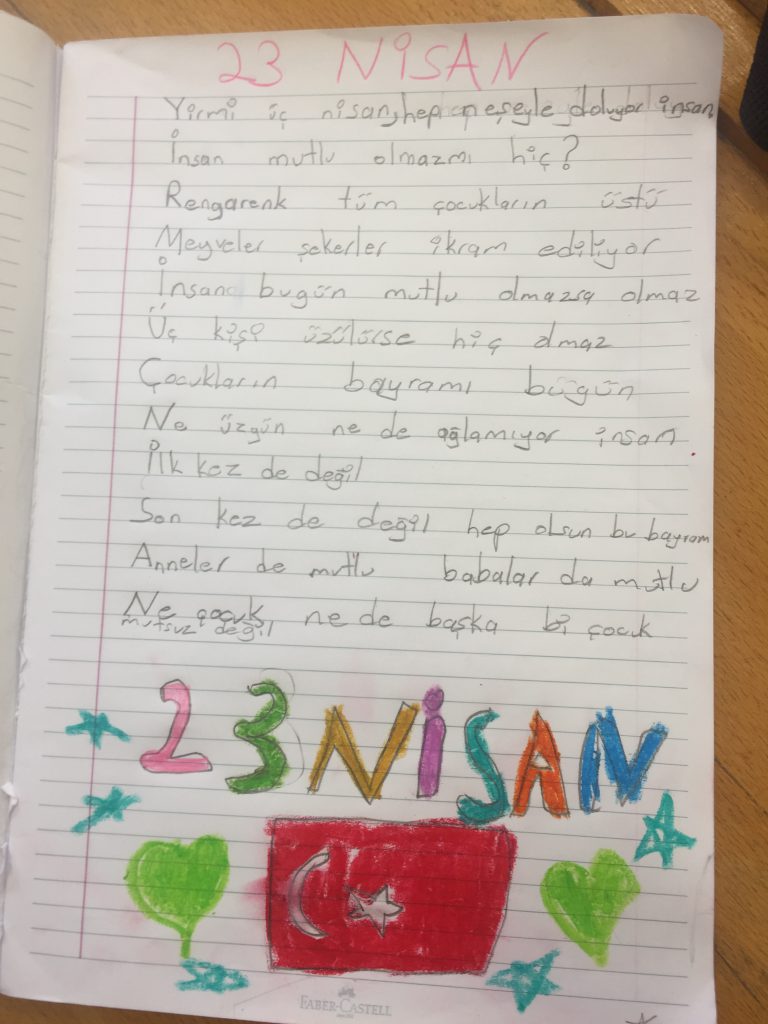 23 NİSAN
Yirmi üç nisan, hep neşeyle doluyor insan
İnsan mutlu olmazmı hiç?
Rengarenk tüm çocukların üstü
Meyveler şekerler ikram ediliyor
İnsana bugün mutlu olmazsa olmaz
Üç kişi üzülürse hiç olmaz
Çocukların bayramı bugün
Ne üzgün ne de ağlamıyor insan
İlk kez de değil
Son kez de değil hep olsun bu bayram
Anneler de mutlu babalar da mutlu
Ne çocuk ne de başka bi çocuk
mutsuz değil
23 NİSAN
FABER-CASTELL